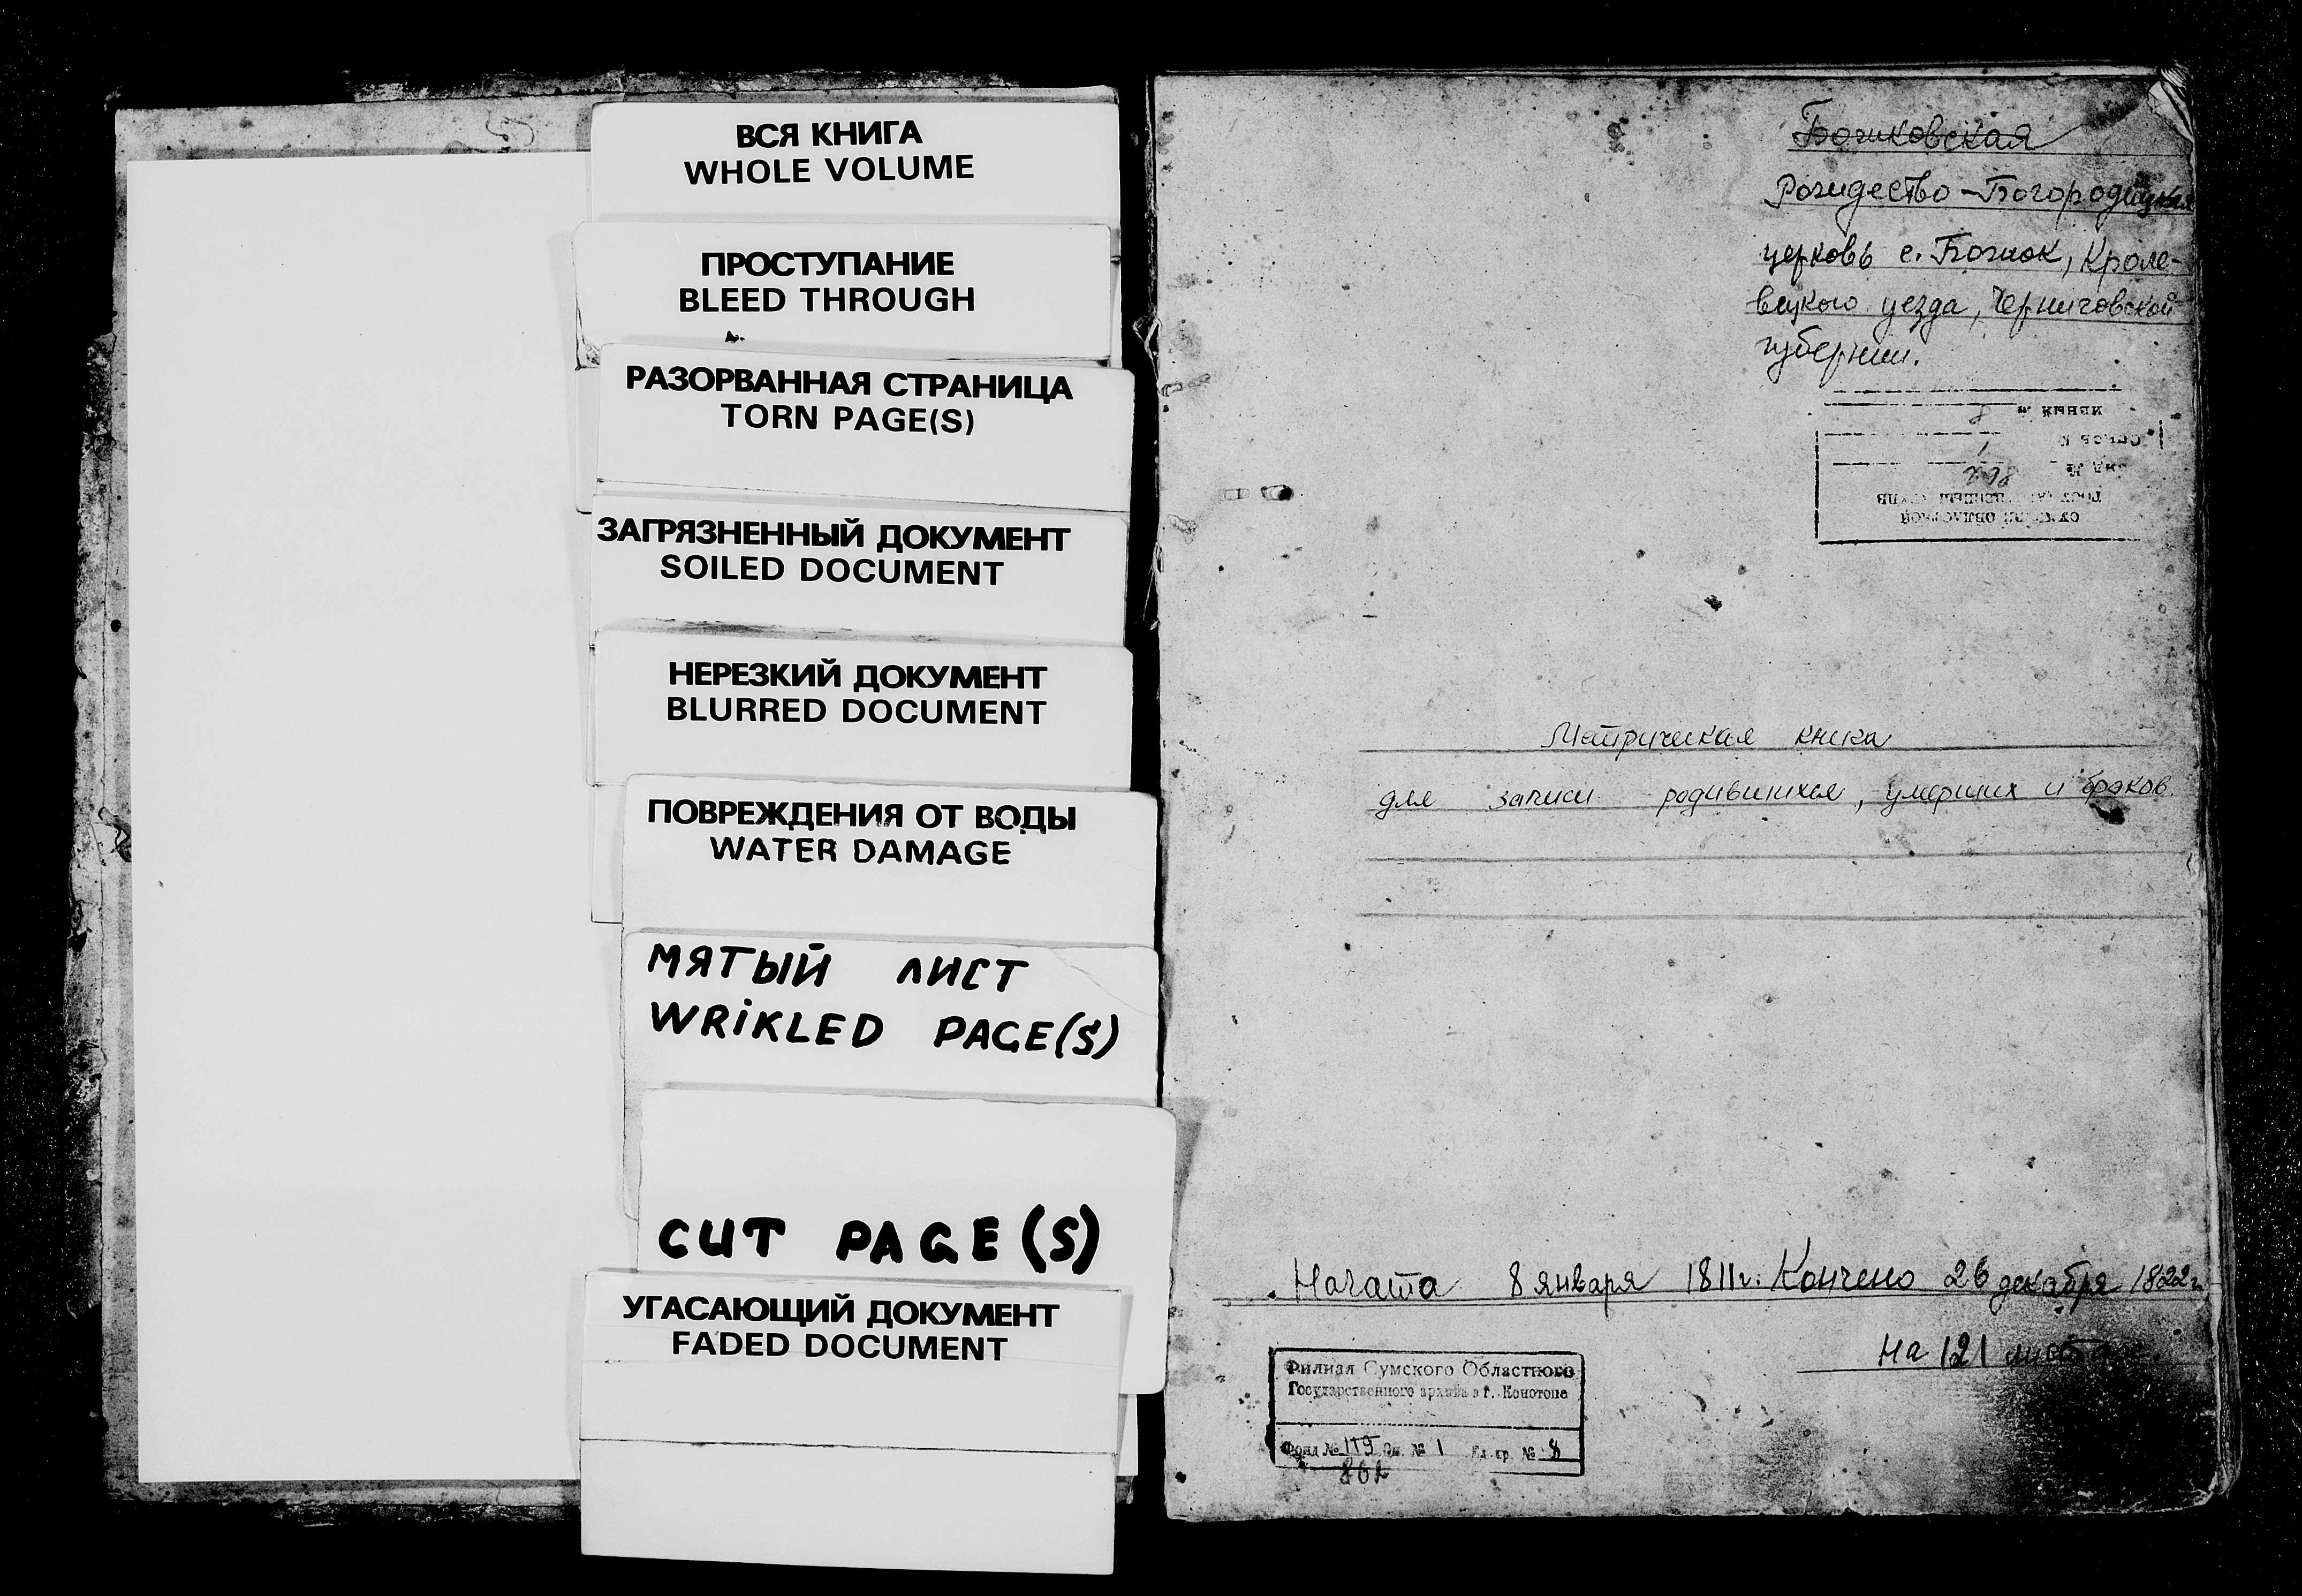 ВСЯ КНИГА
WHOLE VOLUME
ПРОСТУПАНИЕ
BLEED THROUGH
РАЗОРВАННАЯ СТРАНИЦА
TORN PAGE(S)
ЗАГРЯЗНЕННЫЙ ДОКУМЕНТ
SOILED DOCUMENT
НЕРЕЗКИЙ ДОКУМЕНТ
BLURRED DOCUMENT
ПОВРЕЖДЕНИЯ ОТ ВОДЫ
WATER DAMAGE
МЯТЫЙ ЛИСТ
WRIKLED PAGE(S)
CUT PAGE(S)
УГАСАЮЩИЙ ДОКУМЕНТ
FADED DOCUMENT
Рождество-Богородицкая
церковь с. Божок, Кроле-
вецкого уезда, Черниговской
губернии.
Метрическая книга
для записи родившихся, умерших и браков.
Начата 8 января 1811г. Кончено 26 декабря 1822г.
На 121 листах
Филиал Сумского Областного
Государственного архива в г. Конотопе
Фонд № 119 Оп. № 1 Ед. хр. № 8
862